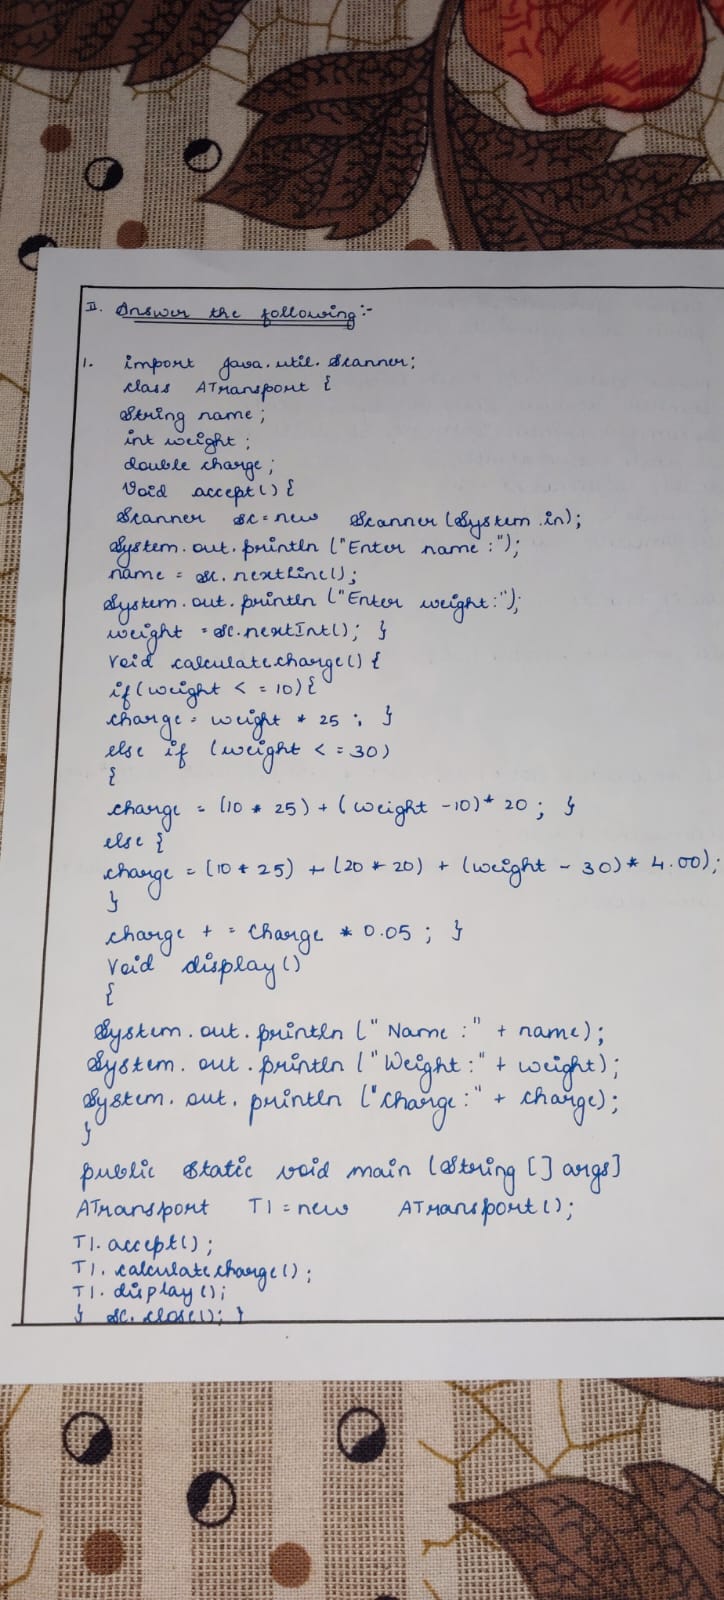 II. Answer the following:-
1. import java.util.Scanner;
class ATransport {
String name;
int weight;
double charge;
Void accept() {
Scanner sc = new Scanner (System.in);
System.out.println ("Enter name :");
name = sc.nextLine();
System.out.println ("Enter weight:");
weight = sc.nextInt(); }
Void calculatecharge() {
if (weight < = 10) {
charge = weight * 25 ; }
else if (weight < = 30)
{
charge = (10 * 25) + ( weight -10)* 20 ; }
else {
charge = (10 * 25) + (20 * 20) + (weight - 30)* 4.00);
}
charge + = Charge * 0.05 ; }
Void display()
{
System.out.println (" Name :" + name);
System.out.println ("Weight :" + weight);
System.out.println ("charge :" + charge);
}
public static void main (String [] args]
ATransport T1 = new ATransport();
T1.accept();
T1.calculatecharge();
T1.display();
} sc.close(); }